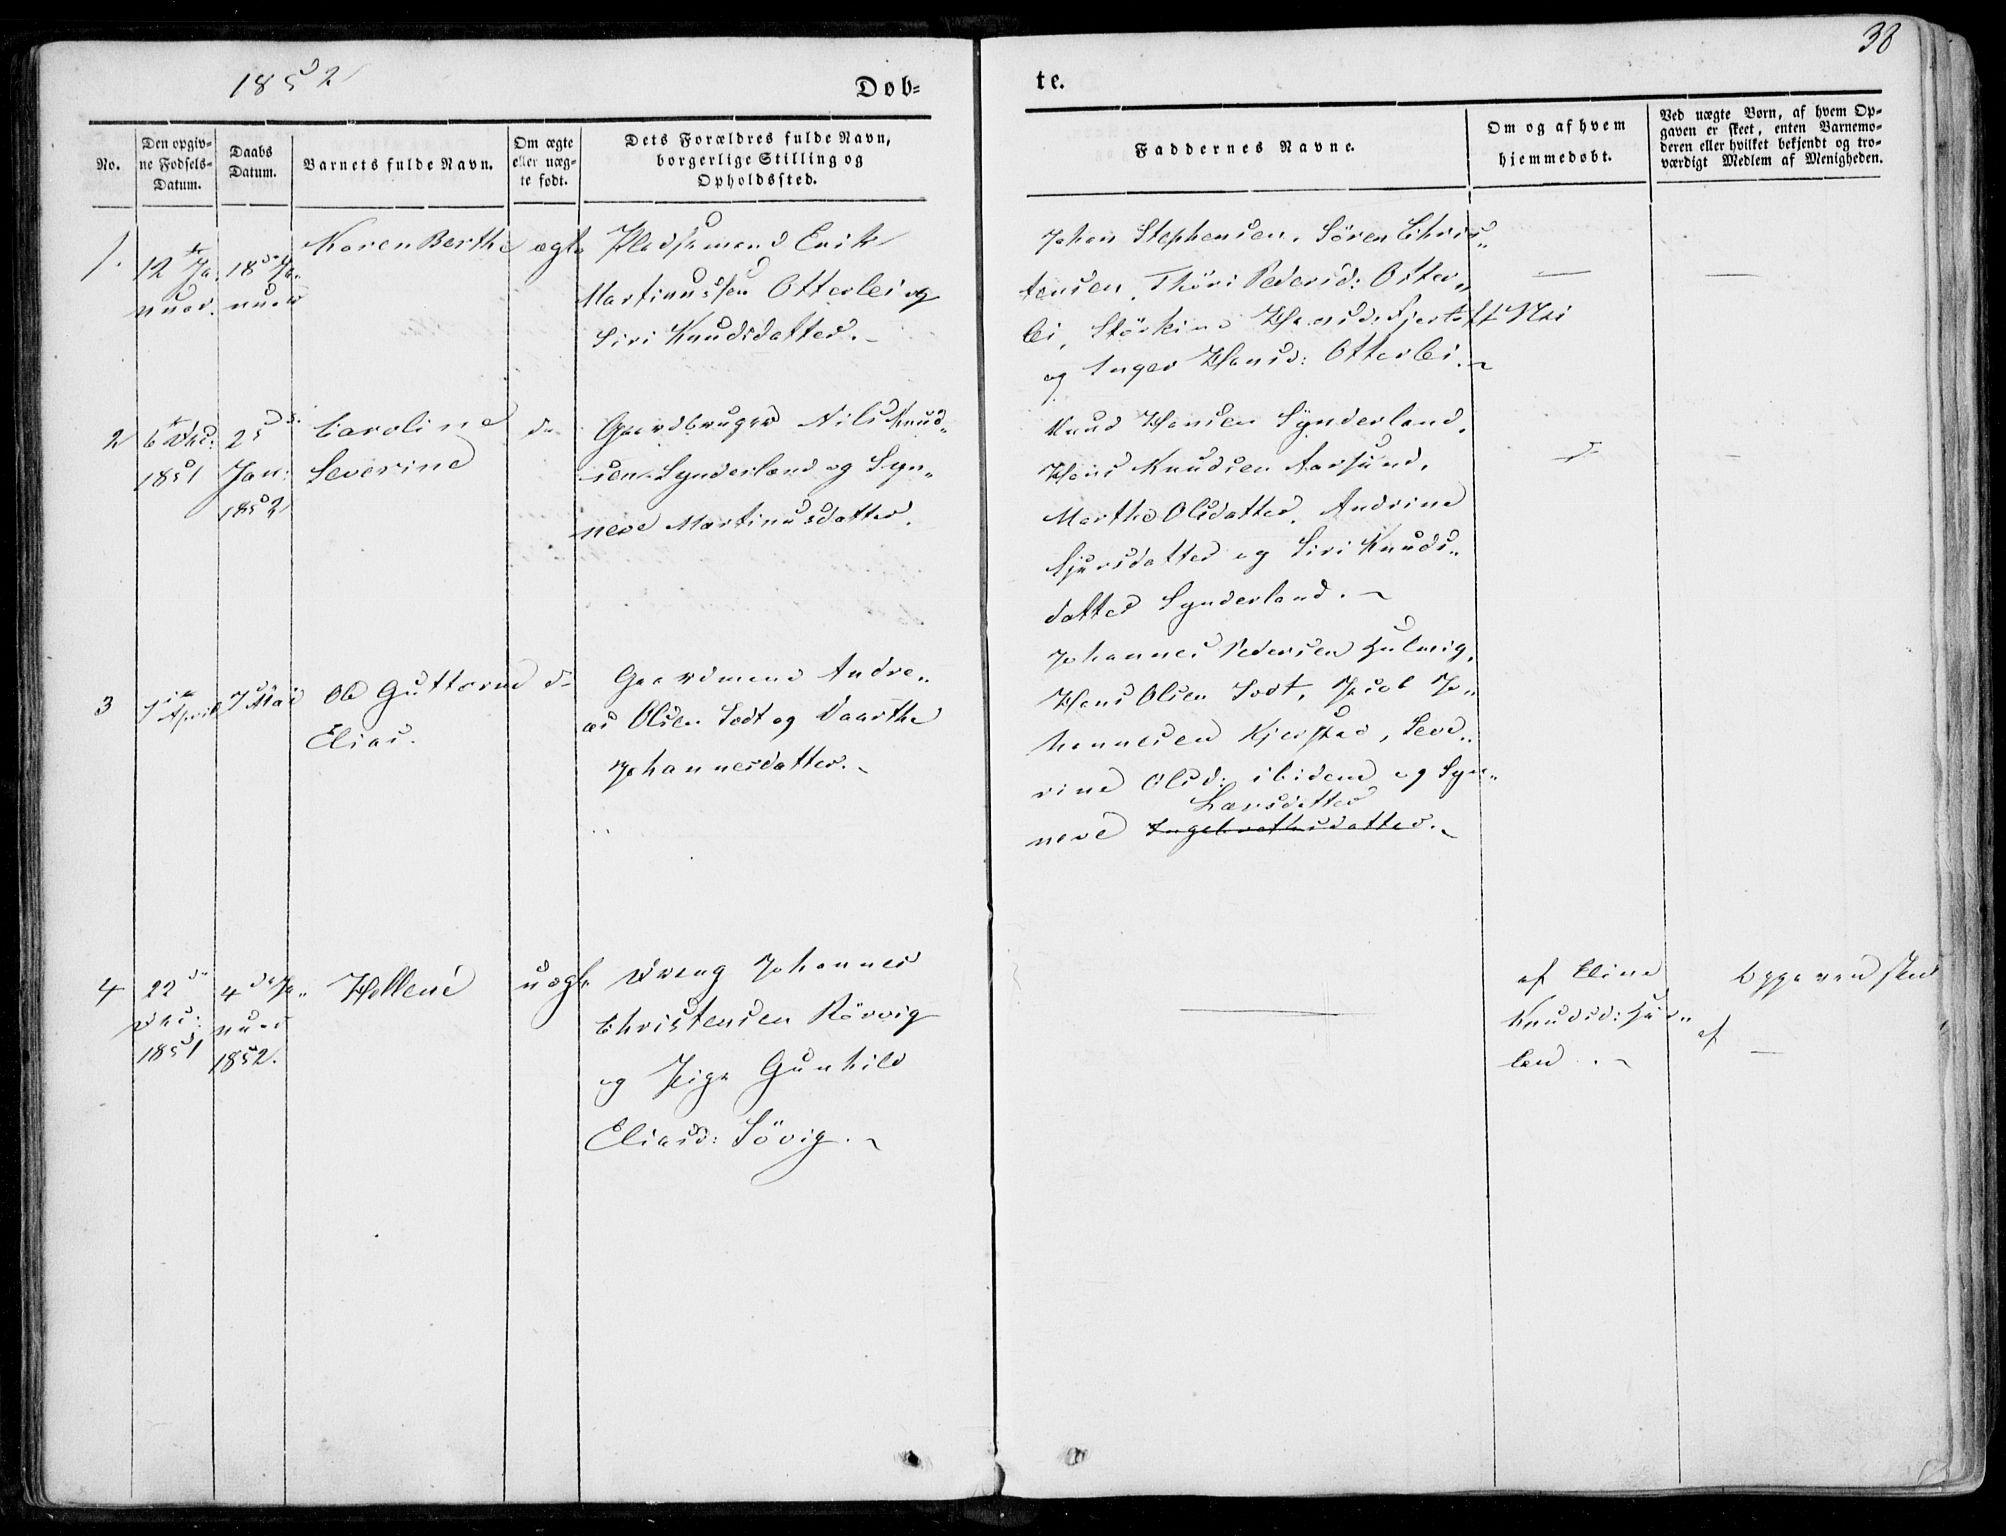 38
1852
Døb-
te.
No.
Den opgiv-
ne Fødsels-
Datum.
Daabs
Datum.
Barnets fulde Navn.
Om ægte
eller uæg-
te født.
Dets Forældres fulde Navn,
borgerlige Stilling og
Opholdssted.
Faddernes Navne.
Om og af hvem
hjemmedøbt.
Ved uægte Børn, af hvem Op-
gaven er skeet, enten Barnemo-
deren eller hvilket bekjendt og tro-
værdigt Medlem af Menigheden.
1.
12te Ja-
nuar.
18de Ja-
nuar
Karen Berthe
ægte
Pladsemand Erik
Martinussen Otterlei og
Siri Knudsdatter.
Johan Stephensen, Sören Chris-
tensen, Thöri Pedersd: Otter-
lei, Hansd: Fjertoft
og Inger Hansd: Otterlei.
Nei
2
6te Dec:
1851
25d
Jan:
1852
Caroline
Severine
do
Gaardbruger Nils Knud-
sen Synderland og Syn-
neve Martinusdatter.
Knud Hansen Synderland,
Hans Knudsen Aarsund,
Marthe Olsdatter, Andrine
Sjursdatter og Siri Knuds-
datter Synderland.
3
April
7 Mai
Ole Guttorm
Elias.
d
Gaardmand Andre-
as Olsen Sodt og Vaarthe
Johannesdatter.
Johannes Pedersen Hulvig,
Hans Olsen Sodt, Jacob Jo-
hannesen Kjerstad, Seve-
rine Olsd: ibidem og Syn-
Larsdatter
neve Ingebrethsdatter.
4
22de
Dec:
1851
4de Ja-
nuar
1852.
Hellene
uægte
Dreng Johannes
Christensen Rövvig
og Pige Gunhild
Eliasd: Sövig.
af Eline
Knudsd: Hu-
len.
Opgaven skeet
af